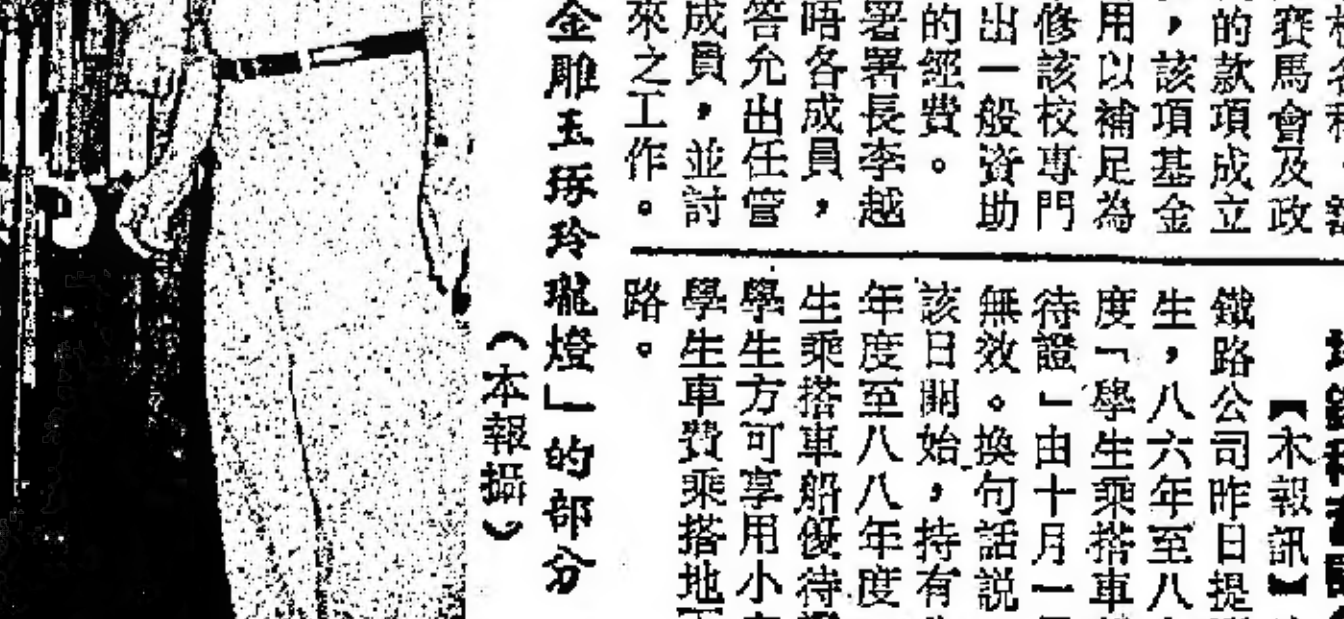 賽馬會及政
的款項成立
，該項基金
用以補足為
修該校專門
出一般資助
的經費。
署署長李越
晤各成員，
答允出任管
成員，並討
來之工作。
【本報訊】
鐵路公司昨日提
生，八六年至八
度「學生乘搭車
待證」由十月一
無效。換句話說
該日開始，持有
年度至八八年度
生乘搭車船優待
學生方可享用小
學生車費乘搭地
路。
金雕玉琢玲瓏燈」的部分
（本報攝）